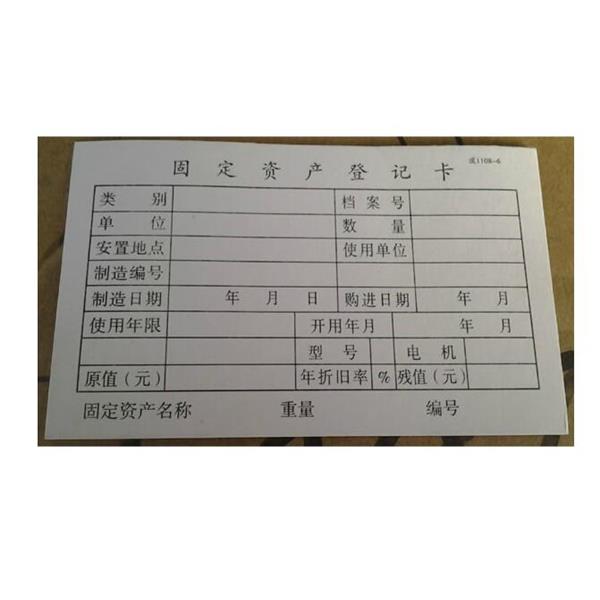 固定资产登记卡
类别 档案号
单位 数量
安置地点 使用单位
制造编号
制造日期 年 月 日 购进日期 年 月
使用年限 开用年月 年 月
型号 电机
原值(元) 年折旧率 % 残值(元)
固定资产名称 重量 编号